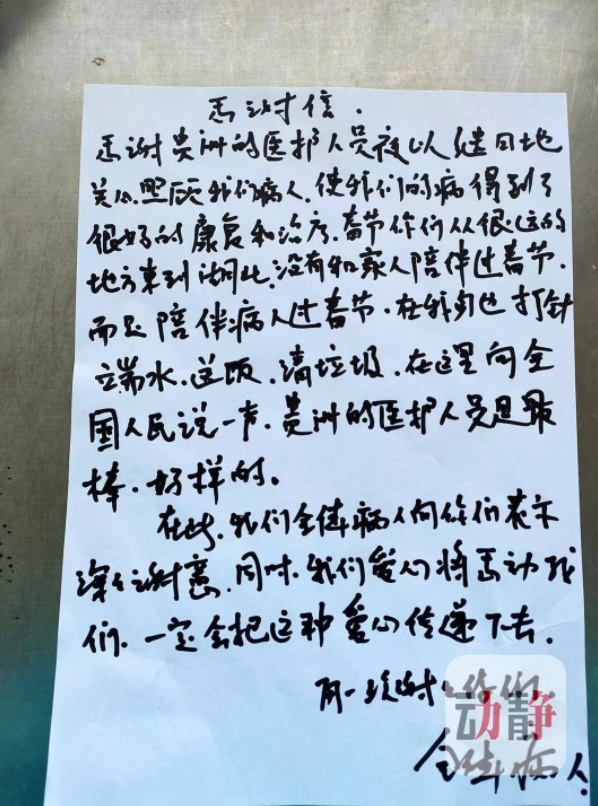 感谢信.
感谢贵洲的医护人员夜以继日地
关心.照顾我们病人.使我们的病得到了
很好的康复和治疗.春节你们从很远的
地方来到湖北.没有和家人陪伴过春节.
而是陪伴病人过春节.在我身边打针
端水.送饭.清垃圾.在这里向全
国人民说一声.贵洲的医护人员是最
棒.好样的。
在此.我们全体病人向你们表示
深々谢意.同时.我们爱心将感动我
们.一定会把这种爱心传递下去.
再一次谢
动静
全 病人.